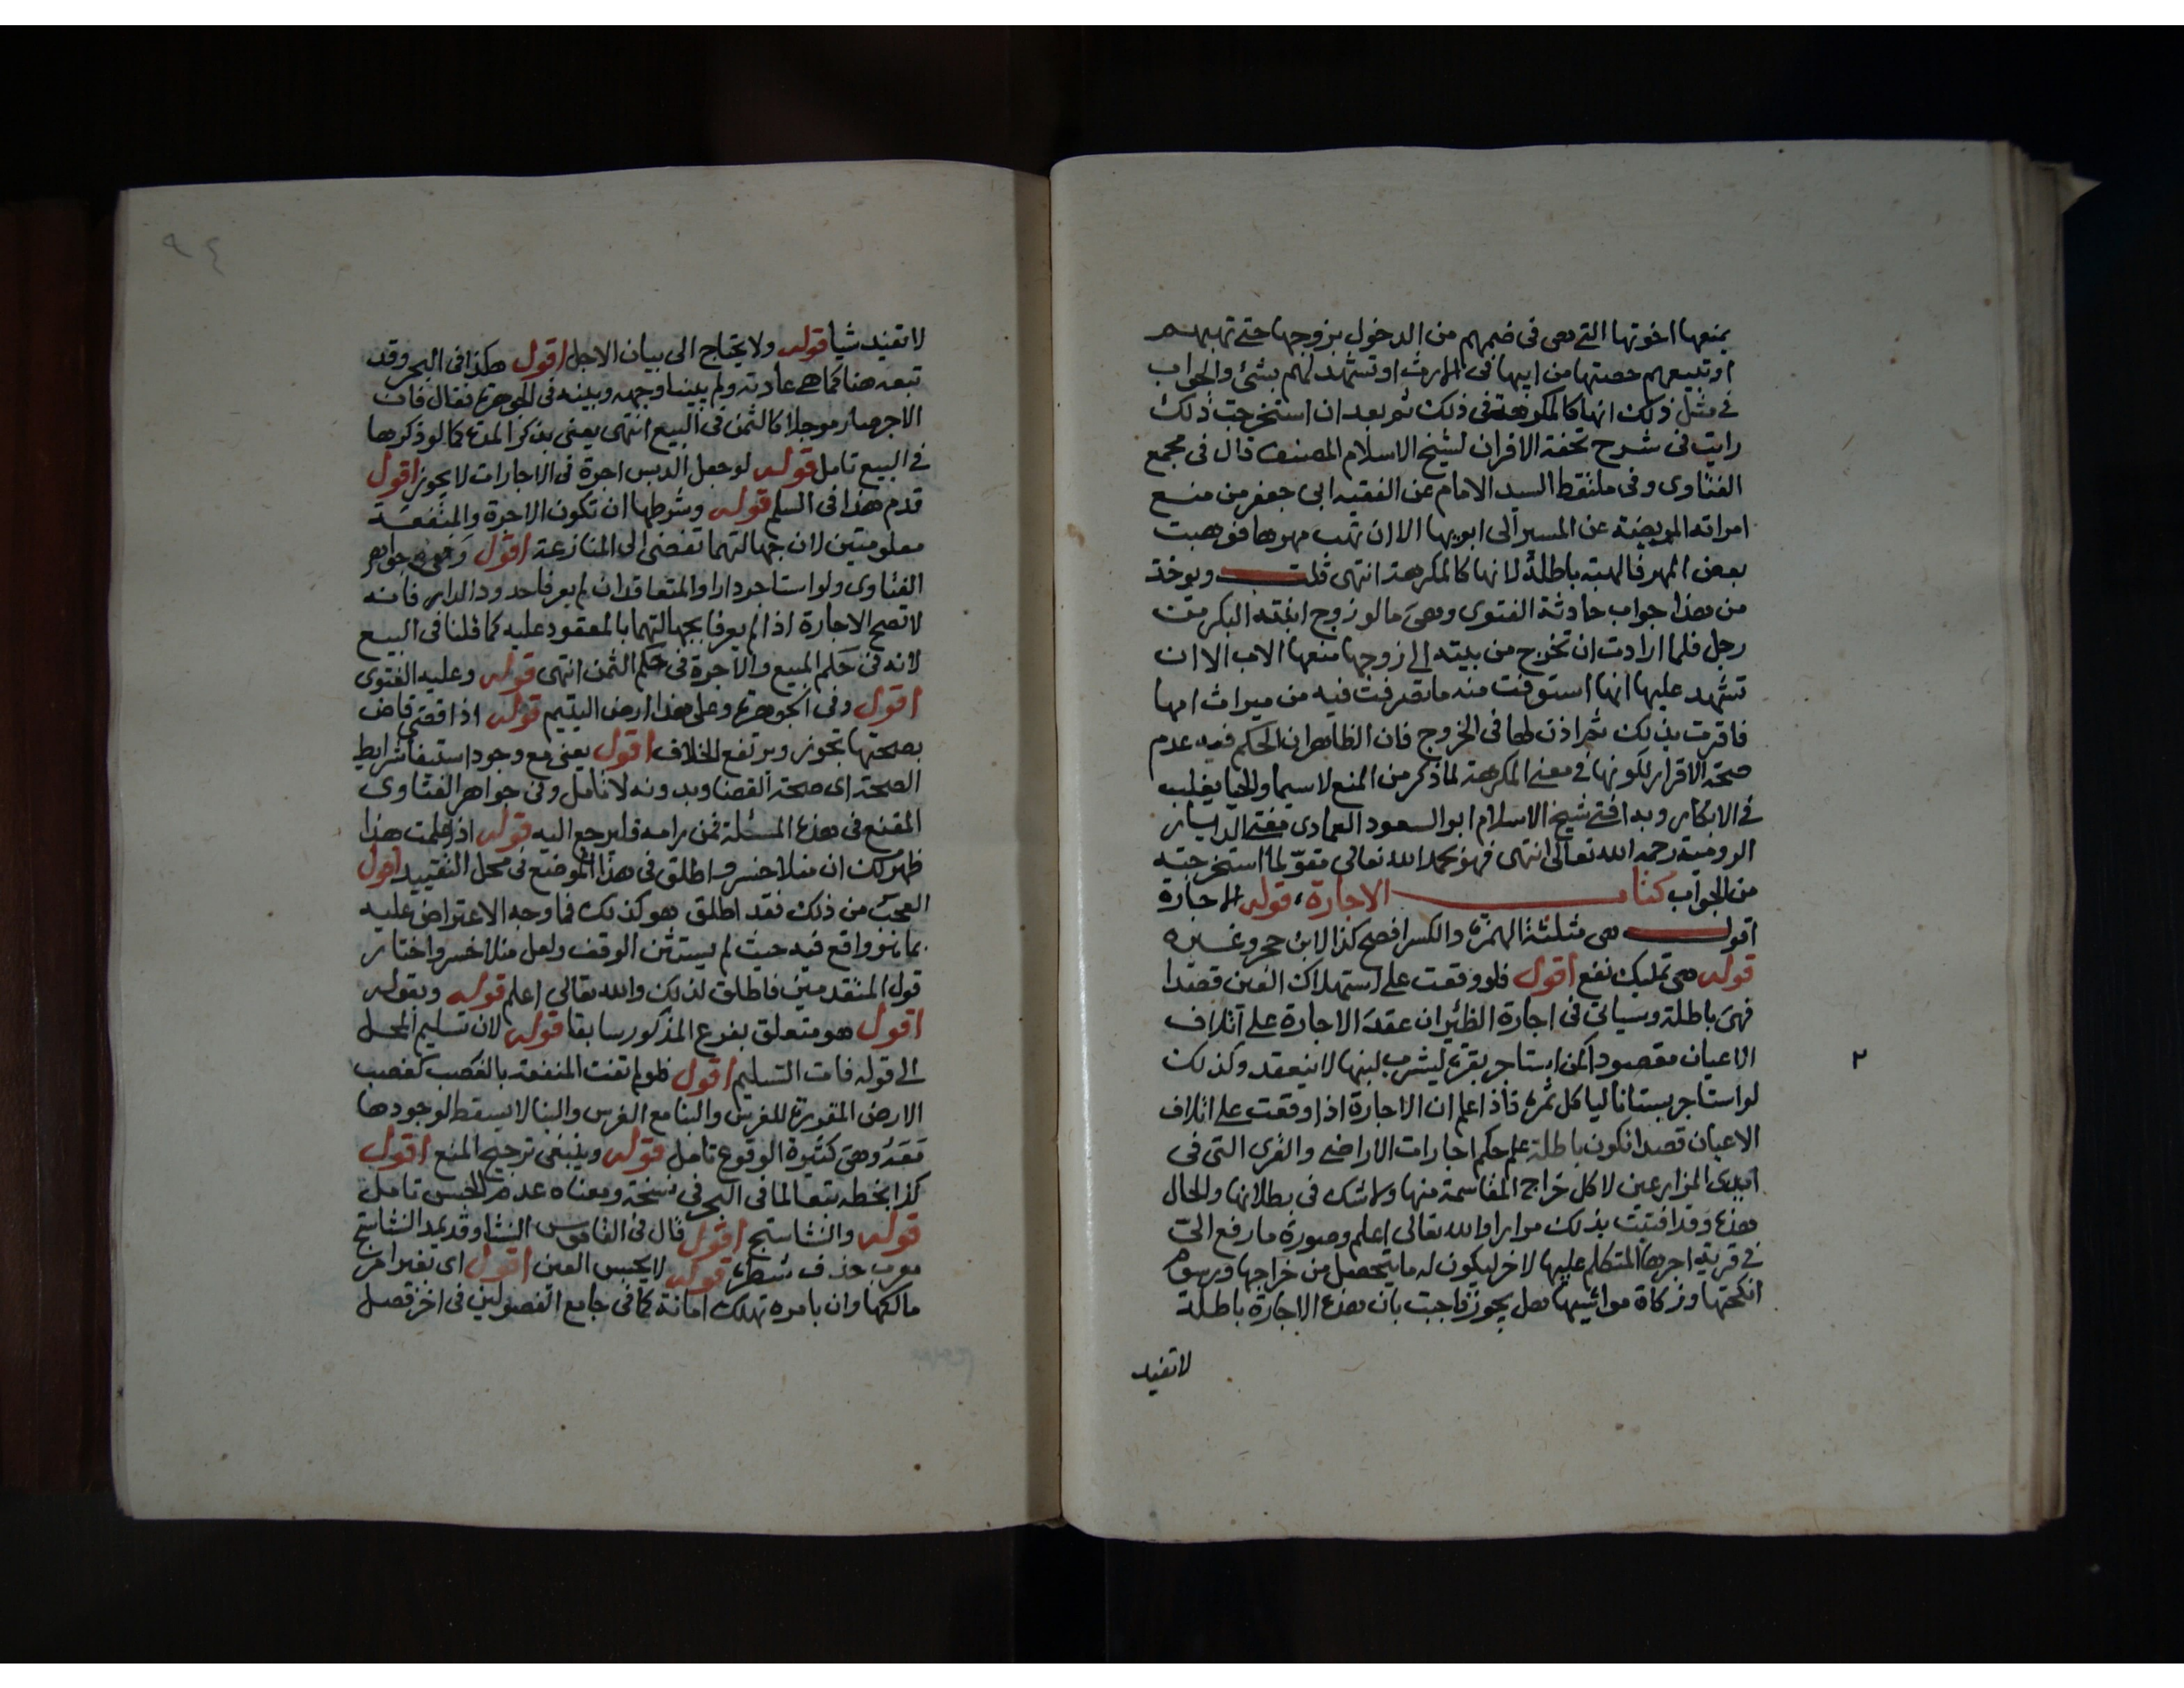 يمنعها اخوتها التي هي في ضمهم من الدخول بزوجها حتى تهبهم
او تبيعهم حصتها من ابيها في الارث او تشهد لهم بشئ والجواب
في مثل ذلك انها كالمكرهة في ذلك ثم بعد ان استخرجت ذلك
رايت في شرح تحفة الاقران لشيخ الاسلام المصنف قال في مجمع
الفتاوى وفي ملتقط السيد الامام عن الفقيه ابي جعفر من منع
امراته المريضة عن المسير الى ابويها الا ان تهب مهرها فوهبت
بعض المهر فالهبة باطلة لانها كالمكرهة انتهى قلت ويوخذ
من هذا جواب حادثة الفتوى وهي ما لو زوج ابنته البكر من
رجل فلما ارادت ان تخرج من بيته الى زوجها منعها الاب الا ان
تشهد عليها انها استوفت منه ما تصرفت فيه من ميراث امها
فاقرت بذلك ثم اذن لها في الخروج فان الظاهر ان الحكم فيه عدم
صحة الاقرار لكونها في معنى المكرهة لما ذكر من المنع لاسيما والحيا يغلب
في الابكار وبه افتى شيخ الاسلام ابو السعود العمادي مفتي الديار
الرومية رحمه الله تعالى انتهى فهو بحمد الله تعالى مقو لما استخرجته
من الجواب كتاب الاجارة، قوله الاجارة
اقول هي مثلثة الهمزة والكسر افصح كذا لابن حجر وغيره
قوله هي تمليك نفع اقول فلو وقعت على استهلاك العين قصدا
فهي باطلة وسياتي في اجارة الظئر ان عقد الاجارة على اتلاف
الاعيان مقصودا كمن استاجر بقرة ليشرب لبنها لا ينعقد وكذلك
٢
لو استاجر بستانا لياكل ثمره فاذا علم ان الاجارة اذا وقعت على اتلاف
الاعيان قصدا تكون باطلة علم حكم اجارات الاراضي والقرى التي في
ايدي المزارعين لاكل خراج المقاسمة منها ولا شك في بطلانها والحال
هذه وقد افتيت بذلك مرارا والله تعالى اعلم وصورة ما رفع الي
في قرية اجرها المتكلم عليها لاخر ليكون له ما يتحصل من خراجها ورسوم
انكحتها وزكاة مواشيها هل يجوز فاجبت بان هذه الاجارة باطلة
لا تفيد
٩٤
لا تفيد شيا قوله ولا يحتاج الى بيان الاجل اقول هكذا في البحر وقد
تبعه هنا كما هي عادته ولم يبينا وجهه وبينه في الجوهرة فقال فان
الاجر صار موجلا كالثمن في البيع انتهى يعني بذكر المدة كما لو ذكرها
في البيع تامل قوله لو جعل الدبس اجرة في الاجارات لا يجوز اقول
قدم هذا في السلم قوله وشرطها ان تكون الاجرة والمنفعة
معلومتين لان جهالتهما تفضي الى المنازعة اقول وفي جواهر
الفتاوى ولو استاجر دارا والمتعاقدان لم يعرفا حدود الدار فانه
لا تصح الاجارة اذا لم يعرفا بجهالتهما بالمعقود عليه كما قلنا في البيع
لانه في حكم المبيع والاجرة في حكم الثمن انتهى قوله وعليه الفتوى
اقول وفي الجوهرة وعلى هذا ارض اليتيم قوله اذا قضى قاض
بصحتها تجوز ويرتفع الخلاف اقول يعني مع وجود استيفا شرايط
الصحة اي صحة القضا وبدونه لا تامل وفي جواهر الفتاوى
المقنع في هذه المسئلة فمن رامه فليرجع اليه قوله اذا علمت هذا
ظهر لك ان منلا خسرو اطلق في هذا الموضع في محل التقييد اقول
العجب من ذلك فقد اطلق هو كذلك فما وجه الاعتراض عليه
بما هو واقع فيه حيث لم يستثن الوقف ولعل منلا خسرو اختار
قول المتقدمين فاطلق لذلك والله تعالى اعلم قوله وبقوله
اقول هو متعلق بفرع المذكور سابقا قوله لان تسليم المحل
الى قوله فات التسليم اقول فلو لم تفت المنفعة بالغصب كغصب
الارض المقررة للغرس والبنا مع الغرس والبنا لا يسقط لوجودها
معه وهي كثيرة الوقوع تامل قوله وينبغي ترجيح المنع اقول
كذا بخطه تبعا لما في البحر في نسخة ومعناه عدم الحبس تامل
قوله والنشاستج اقول قال في القاموس النشا وقد يمد النشاستج
معرب حذف شطره قوله لا يحبس العين اقول اي بغير امر
مالكها وان بامره تهلك امانة كما في جامع الفصولين في اخر فصل